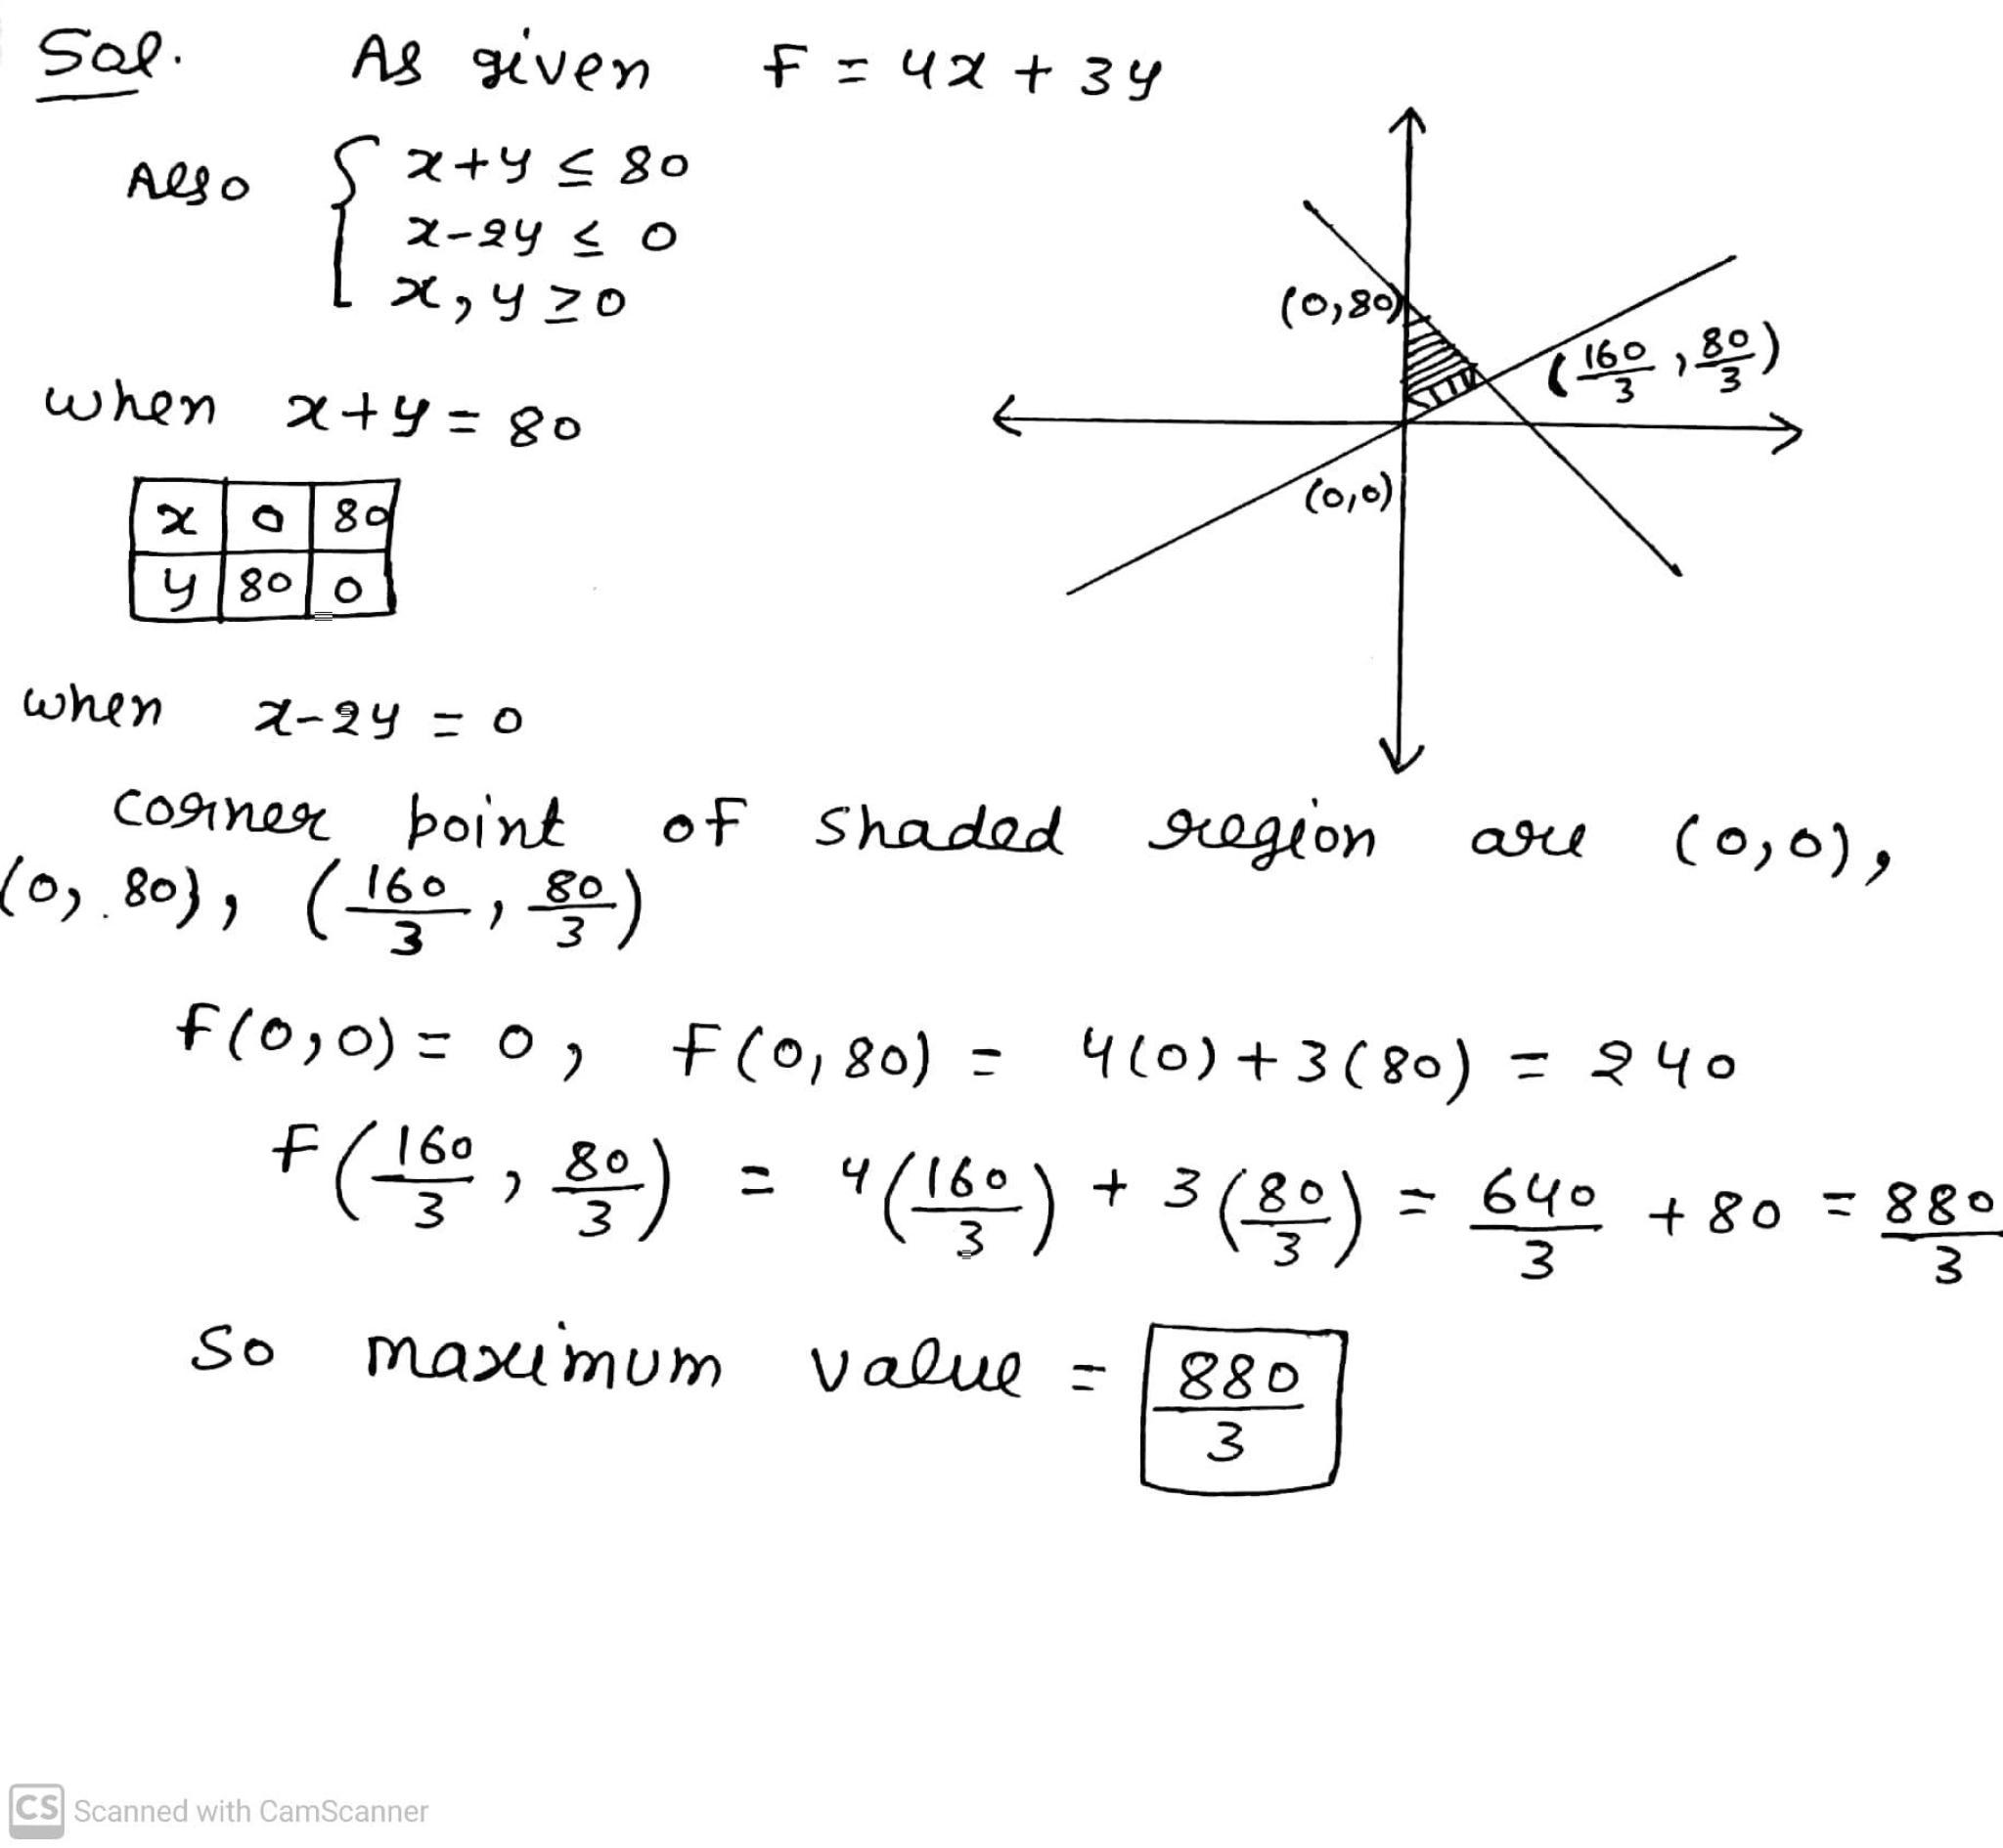 Sol. As given F = 4x + 3y
Also { x+y ≤ 80
x-2y ≤ 0
x, y ≥ 0
when x+y = 80
x 0 80
y 80 0
(0,80)
(160/3, 80/3)
(0,0)
when x-2y = 0
corner point of shaded region are (0,0),
(0, 80), (160/3, 80/3)
F(0,0) = 0, F(0,80) = 4(0)+3(80) = 240
F(160/3, 80/3) = 4(160/3) + 3(80/3) = 640/3 + 80 = 880/3
So maximum value = 880/3
CS Scanned with CamScanner